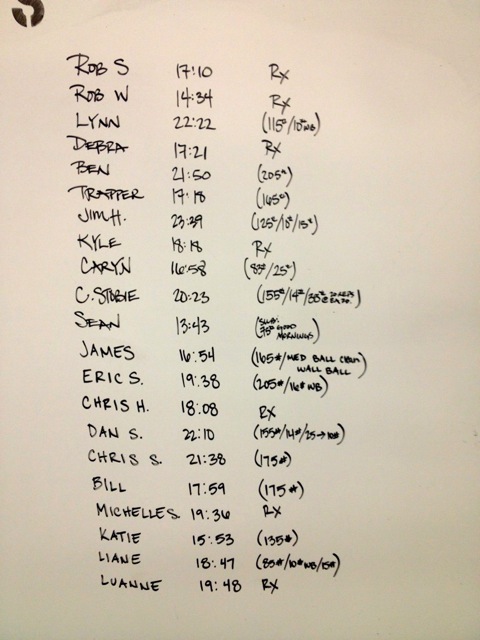 S
ROB S 17:10 RX
ROB W 14:34 RX
LYNN 22:22 (115#/10# WB)
DEBRA 17:21 RX
BEN 21:50 (205#)
TRAPPER 17:18 (165#)
JIM H. 23:39 (125#/18#/15#)
KYLE 18:18 RX
CARYN 16:58 (83#/25#)
C. STOBIE 20:23 (155#/14#/35#
SEAN 13:43 (SUB: 75# GOOD MORNINGS)
JAMES 16:54 (165#/MED BALL CLEAN/
WALL BALL)
ERIC S. 19:38 (205#/16# WB)
CHRIS H. 18:08 RX
DAN S. 22:10 (155#/14#/25→10#)
CHRIS S. 21:38 (175#)
BILL 17:59 (175#)
MICHELLE S. 19:36 RX
KATIE 15:53 (135#)
LIANE 18:47 (85#/10# WB/15#)
LUANNE 19:48 RX